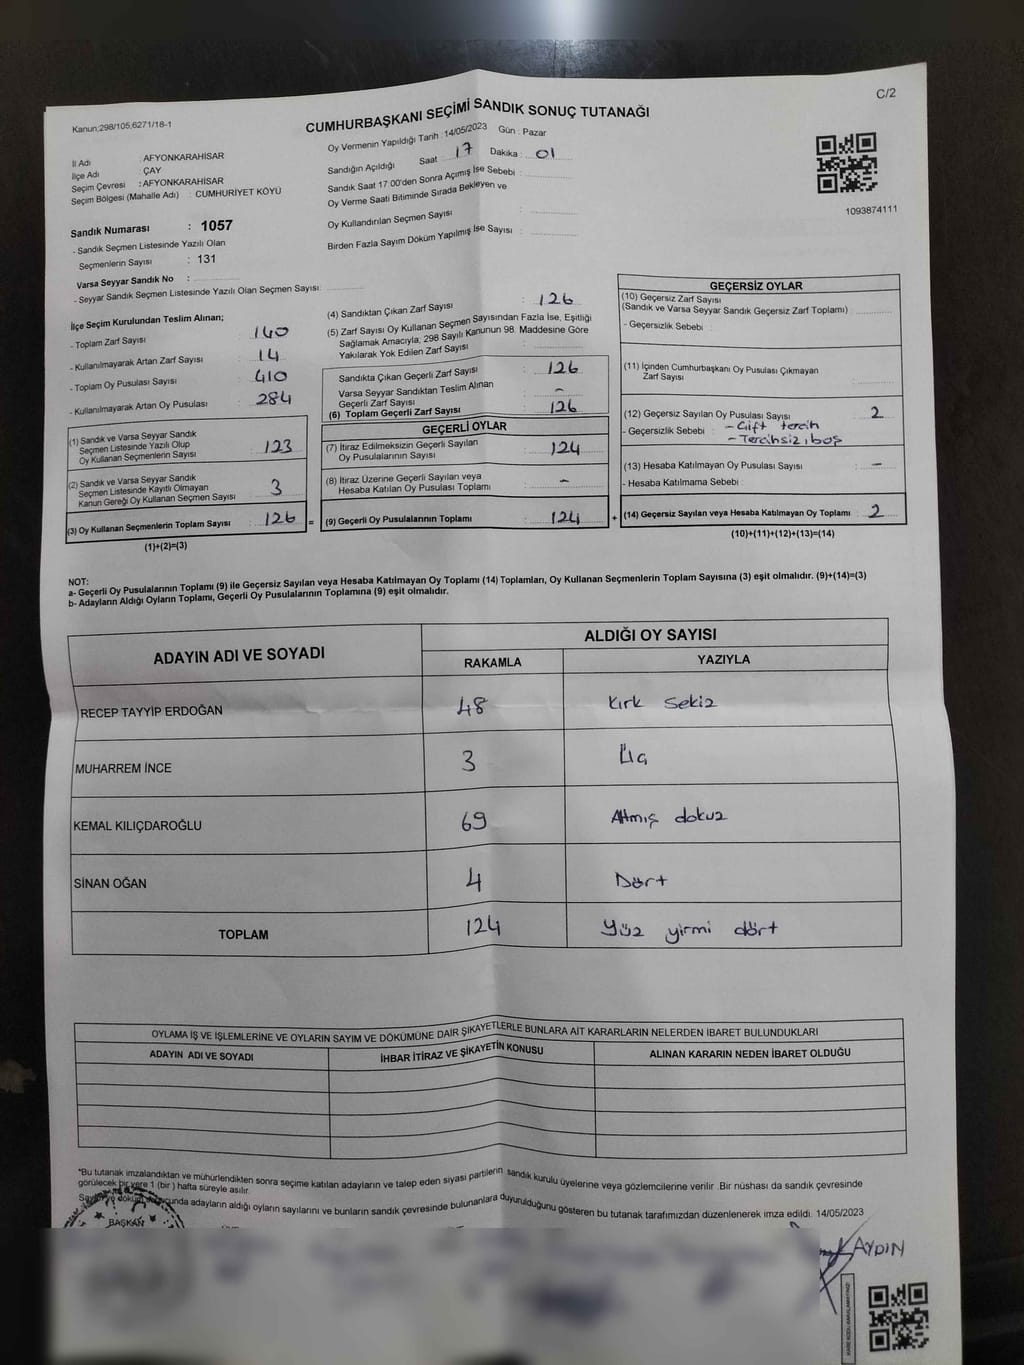 C/2
Kanun;298/105;6271/18-1
CUMHURBAŞKANI SEÇİMİ SANDIK SONUÇ TUTANAĞI
İl Adı : AFYONKARAHİSAR
İlçe Adı : ÇAY
Seçim Çevresi : AFYONKARAHİSAR
Seçim Bölgesi (Mahalle Adı) : CUMHURİYET KÖYÜ
Sandık Numarası : 1057
- Sandık Seçmen Listesinde Yazılı Olan
Seçmenlerin Sayısı : 131
Varsa Seyyar Sandık No :
- Seyyar Sandık Seçmen Listesinde Yazılı Olan Seçmen Sayısı:
Oy Vermenin Yapıldığı Tarih : 14/05/2023 Gün : Pazar
Sandığın Açıldığı Saat 17 Dakika : 01
Sandık Saat 17:00'den Sonra Açımış İse Sebebi :
Oy Verme Saati Bitiminde Sırada Bekleyen ve
Oy Kullandırılan Seçmen Sayısı :
Birden Fazla Sayım Döküm Yapılmış İse Sayısı :
1093874111
İlçe Seçim Kurulundan Teslim Alınan;
- Toplam Zarf Sayısı : 140
- Kullanılmayarak Artan Zarf Sayısı : 14
- Toplam Oy Pusulası Sayısı : 410
- Kullanılmayarak Artan Oy Pusulası : 284
(1) Sandık ve Varsa Seyyar Sandık
Seçmen Listesinde Yazılı Olup
Oy Kullanan Seçmenlerin Sayısı : 123
(2) Sandık ve Varsa Seyyar Sandık
Seçmen Listesinde Kayıtlı Olmayan
Kanun Gereği Oy Kullanan Seçmen Sayısı : 3
(3) Oy Kullanan Seçmenlerin Toplam Sayısı : 126 =
(1)+(2)=(3)
(4) Sandıktan Çıkan Zarf Sayısı : 126
(5) Zarf Sayısı Oy Kullanan Seçmen Sayısından Fazla İse, Eşitliği
Sağlamak Amacıyla, 298 Sayılı Kanunun 98. Maddesine Göre
Yakılarak Yok Edilen Zarf Sayısı :
Sandıkta Çıkan Geçerli Zarf Sayısı : 126
Varsa Seyyar Sandıktan Teslim Alınan
Geçerli Zarf Sayısı : -
(6) Toplam Geçerli Zarf Sayısı : 126
GEÇERLİ OYLAR
(7) İtiraz Edilmeksizin Geçerli Sayılan
Oy Pusulalarının Sayısı : 124
(8) İtiraz Üzerine Geçerli Sayılan veya
Hesaba Katılan Oy Pusulası Toplamı : -
(9) Geçerli Oy Pusulalarının Toplamı : 124 +
GEÇERSİZ OYLAR
(10) Geçersiz Zarf Sayısı
(Sandık ve Varsa Seyyar Sandık Geçersiz Zarf Toplamı) :
- Geçersizlik Sebebi :
(11) İçinden Cumhurbaşkanı Oy Pusulası Çıkmayan
Zarf Sayısı :
(12) Geçersiz Sayılan Oy Pusulası Sayısı : 2
- Geçersizlik Sebebi : - Çift tercih
- Tercihsiz, boş
(13) Hesaba Katılmayan Oy Pusulası Sayısı : -
- Hesaba Katılmama Sebebi :
(14) Geçersiz Sayılan veya Hesaba Katılmayan Oy Toplamı : 2
(10)+(11)+(12)+(13)=(14)
NOT:
a- Geçerli Oy Pusulalarının Toplamı (9) ile Geçersiz Sayılan veya Hesaba Katılmayan Oy Toplamı (14) Toplamları, Oy Kullanan Seçmenlerin Toplam Sayısına (3) eşit olmalıdır. (9)+(14)=(3)
b- Adayların Aldığı Oyların Toplamı, Geçerli Oy Pusulalarının Toplamına (9) eşit olmalıdır.
ADAYIN ADI VE SOYADI
ALDIĞI OY SAYISI
RAKAMLA YAZIYLA
RECEP TAYYİP ERDOĞAN 48 Kırk sekiz
MUHARREM İNCE 3 Üç
KEMAL KILIÇDAROĞLU 69 Altmış dokuz
SİNAN OĞAN 4 Dört
TOPLAM 124 Yüz yirmi dört
OYLAMA İŞ VE İŞLEMLERİNE VE OYLARIN SAYIM VE DÖKÜMÜNE DAİR ŞİKAYETLERLE BUNLARA AİT KARARLARIN NELERDEN İBARET BULUNDUKLARI
ADAYIN ADI VE SOYADI İHBAR İTİRAZ VE ŞİKAYETİN KONUSU ALINAN KARARIN NEDEN İBARET OLDUĞU
*Bu tutanak imzalandıktan ve mühürlendikten sonra seçime katılan adayların ve talep eden siyasi partilerin sandık kurulu üyelerine veya gözlemcilerine verilir. Bir nüshası da sandık çevresinde
görülecek bir yere 1 (bir) hafta süreyle asılır.
adayların aldığı oyların sayılarını ve bunların sandık çevresinde bulunanlara duyurulduğunu gösteren bu tutanak tarafımızdan düzenlenerek imza edildi. 14/05/2023
BAŞKAN
AYDIN